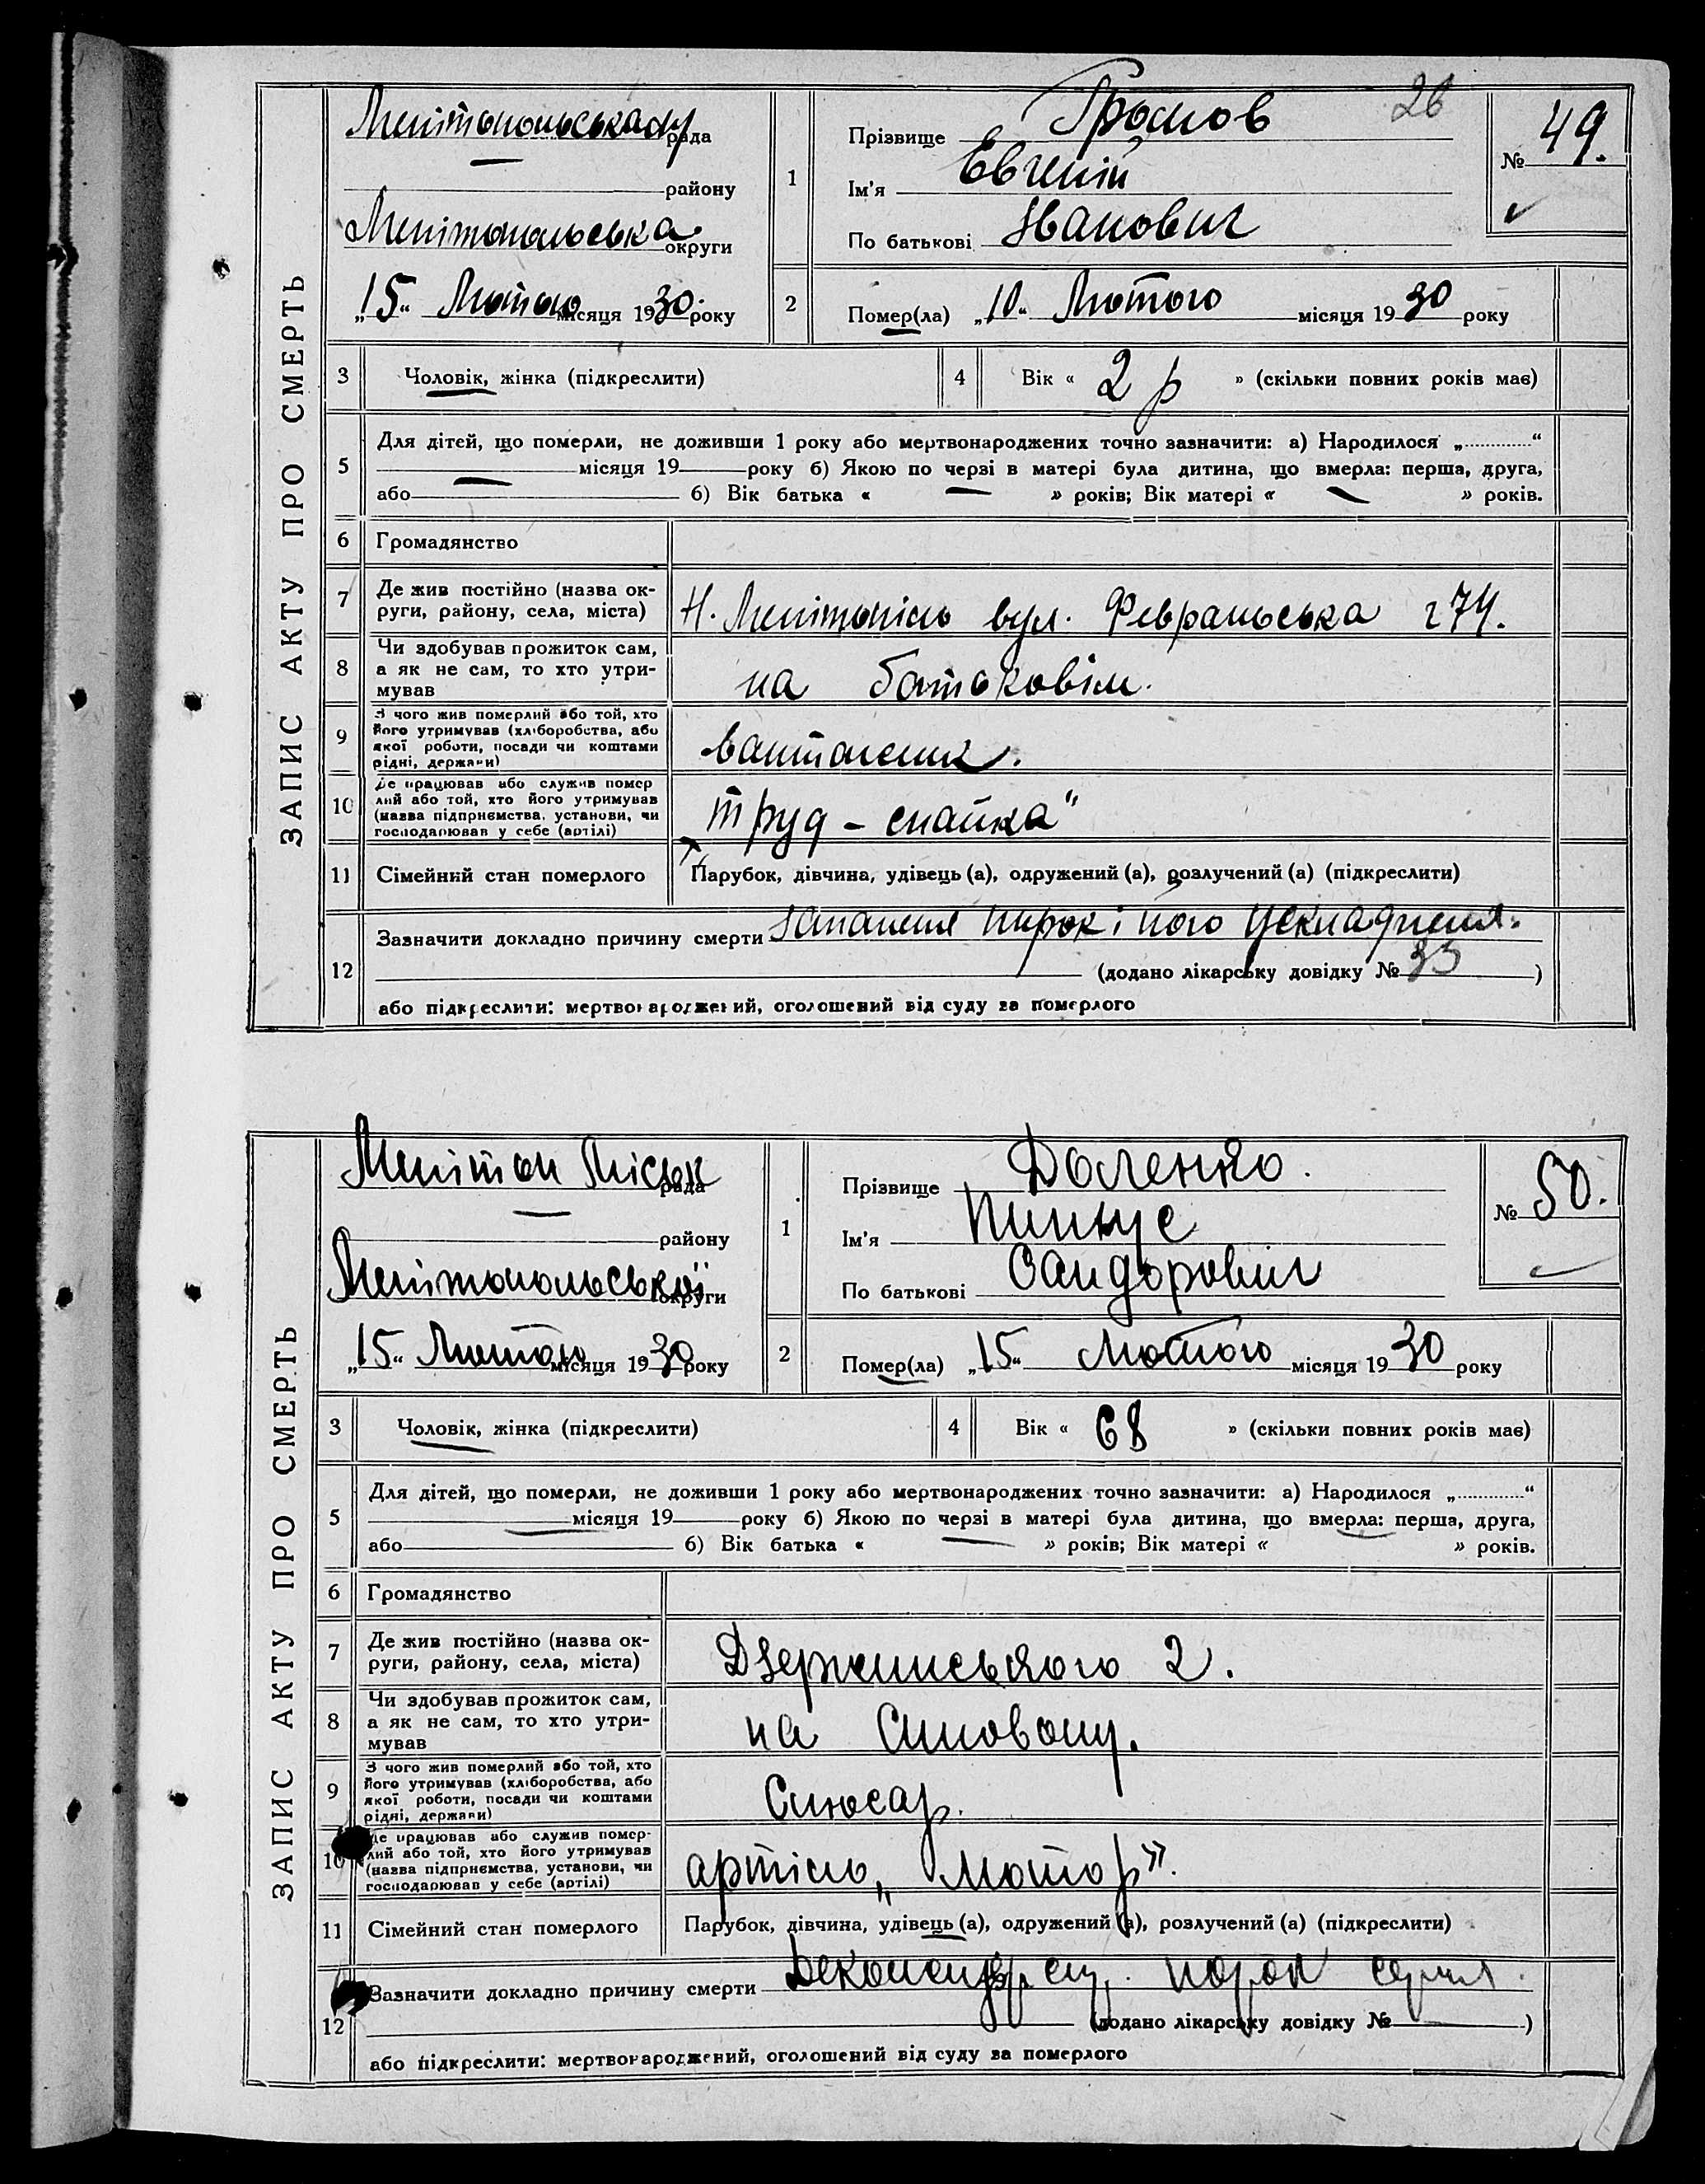 ЗАПИС АКТУ ПРО СМЕРТЬ
Мелітопольська рада
району
Мелітопольська округи
„15“ Лютого місяця 1930 року
26
1 Прізвище Громов
Ім'я Евгеній
По батькові Іванович
№ 49.
2 Помер(ла) „10“ Лютого місяця 1930 року
3 Чоловік, жінка (підкреслити)
4 Вік « 2 р » (скільки повних років має)
5 Для дітей, що померли, не доживши 1 року або мертвонароджених точно зазначити: а) Народилося „............“
місяця 19 року б) Якою по черзі в матері була дитина, що вмерла: перша, друга,
або б) Вік батька « — » років; Вік матері « — » років.
6 Громадянство
7 Де жив постійно (назва ок-
руги, району, села, міста)
Н. Мелітопіль вул. Февральська 274.
8 Чи здобував прожиток сам,
а як не сам, то хто утри-
мував
на батьковім.
9 З чого жив померлий або той, хто
його утримував (хліборобства, або
якої роботи, посади чи коштами
рідні, держави)
вантажник.
10 Де працював або служив помер
лий або той, хто його утримував
(назва підприємства, установи, чи
господарював у себе (артілі)
труд – спайка"
11 Сімейний стан померлого
Парубок, дівчина, удівець (а), одружений (а), розлучений (а) (підкреслити)
12 Зазначити докладно причину смерти запаленя нирок і його ускладненя.
(додано лікарську довідку № 33 )
або підкреслити: мертвонароджений, оголошений від суду за померлого
ЗАПИС АКТУ ПРО СМЕРТЬ
Мелітоп Міськ рада
району
Мелітопольської округи
„15“ Лютого місяця 1930 року
1 Прізвище Доленко.
Ім'я Пинкус
По батькові Сандорович
№ 50.
2 Помер(ла) „15“ Лютого місяця 1930 року
3 Чоловік, жінка (підкреслити)
4 Вік « 68 » (скільки повних років має)
5 Для дітей, що померли, не доживши 1 року або мертвонароджених точно зазначити: а) Народилося „............“
місяця 19 року б) Якою по черзі в матері була дитина, що вмерла: перша, друга,
або б) Вік батька « — » років; Вік матері « » років.
6 Громадянство
7 Де жив постійно (назва ок-
руги, району, села, міста)
Дзержинського 2.
8 Чи здобував прожиток сам,
а як не сам, то хто утри-
мував
на синовому.
9 З чого жив померлий або той, хто
його утримував (хліборобства, або
якої роботи, посади чи коштами
рідні, держави)
Слюсар.
10 Де працював або служив помер-
лий або той, хто його утримував
(назва підприємства, установи, чи
господарював у себе (артілі)
артіль „Мотор".
11 Сімейний стан померлого
Парубок, дівчина, удівець (а), одружений (а), розлучений (а) (підкреслити)
12 Зазначити докладно причину смерти порок серця.
(додано лікарську довідку № )
або підкреслити: мертвонароджений, оголошений від суду за померлого